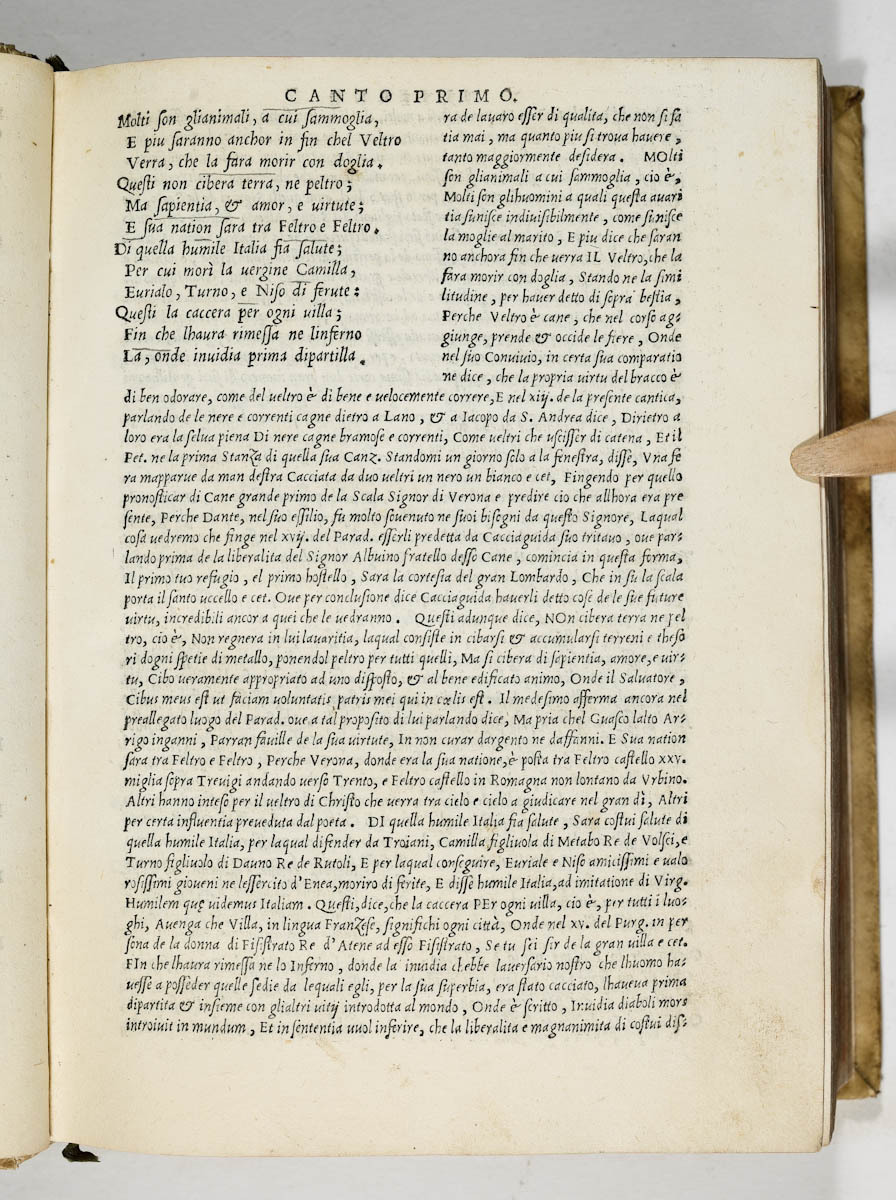 CANTO PRIMO.
Molti son glianimali, a cui sammoglia,
E piu saranno anchor in fin chel Veltro
Verra, che la fara morir con doglia.
Questi non cibera terra, ne peltro;
Ma sapientia, & amor, e uirtute;
E sua nation sara tra Feltro e Feltro.
Di quella humile Italia fia salute;
Per cui morì la uergine Camilla,
Eurialo, Turno, e Niso di ferute:
Questi la caccera per ogni uilla;
Fin che lhaura rimessa ne linferno
La, onde inuidia prima dipartilla.
ra de lauaro esser di qualita, che non si sa
tia mai, ma quanto piu si troua hauere,
tanto maggiormente desidera. MOlti
son glianimali a cui sammoglia, cio è,
Molti son glihuomini a quali questa auari
tia sunisce indiuisibilmente, come sunisce
la moglie al marito, E piu dice che saran
no anchora fin che uerra IL Veltro, che la
fara morir con doglia, Stando ne la simi
litudine, per hauer detto di sopra bestia,
Perche Veltro è cane, che nel corso ag-
giunge, prende & occide le fiere, Onde
nel suo Conuiuio, in certa sua comparatio
ne dice, che la propria uirtu del bracco è
di ben odorare, come del ueltro è di bene e uelocemente correre, E nel xiij. de la presente cantica,
parlando de le nere e correnti cagne dietro a Lano, & a Iacopo da S. Andrea dice, Dirietro a
loro era la selua piena Di nere cagne bramose e correnti, Come ueltri che uscisser di catena, Et il
Pet. ne la prima Stanza di quella sua Canz. Standomi un giorno solo a la fenestra, disse, Vna fe
ra mapparue da man destra Cacciata da duo ueltri un nero un bianco e cet, Fingendo per quello
pronosticar di Cane grande primo de la Scala Signor di Verona e predire cio che allhora era pre
sente, Perche Dante, nel suo essilio, fu molto souenuto ne suoi bisegni da questo Signore, Laqual
cosa uedremo che finge nel xvij. del Parad. esserli predetta da Cacciaguida suo tritauo, oue par-
lando prima de la liberalita del Signor Albuino fratello desso Cane, comincia in questa forma,
Il primo tuo refugio, el primo hostello, Sara la cortesia del gran Lombardo, Che in su la scala
porta il santo uccello e cet. Oue per conclusione dice Cacciaguida hauerli detto cose de le sue future
uirtu, incredibili ancor a quei che le uedranno. Questi adunque dice, NOn cibera terra ne pel
tro, cio è, Non regnera in lui lauaritia, laqual consiste in cibarsi & accumularsi terreni e theso
ri dogni spetie di metallo, ponendol peltro per tutti quelli, Ma si cibera di sapientia, amore, e uir-
tu, Cibo ueramente appropriato ad uno disposto, & al bene edificato animo, Onde il Saluatore,
Cibus meus est ut faciam uoluntatis patris mei qui in cœlis est. Il medesimo afferma ancora nel
preallegato luogo del Parad. oue a tal proposito di lui parlando dice, Ma pria chel Guasco lalto Ar-
rigo inganni, Parran fauille de la sua uirtute, In non curar dargento ne daffanni. E Sua nation
sara tra Feltro e Feltro, Perche Verona, donde era la sua natione, è posta tra Feltro castello xxv.
miglia sopra Treuigi andando uerso Trento, e Feltro castello in Romagna non lontano da Vrbino.
Altri hanno inteso per il ueltro di Christo che uerra tra cielo e cielo a giudicare nel gran dì, Altri
per certa influentia preueduta dal poeta. DI quella humile Italia fia salute, Sara costui salute di
quella humile Italia, per laqual difender da Troiani, Camilla figliuola di Metabo Re de Volsci, e
Turno figliuolo di Dauno Re de Rutoli, E per laqual conseguire, Euriale e Niso amicissimi e ualo
rosissimi gioueni ne lessercito d'Enea, moriro di ferite, E disse humile Italia, ad imitatione di Virg.
Humilem quę uidemus Italiam. Questi, dice, che la caccera PEr ogni uilla, cio è, per tutti i luo-
ghi, Auenga che Villa, in lingua Franzese, significhi ogni città, Onde nel xv. del Purg. in per
sona de la donna di Pisistrato Re d'Atene ad esso Pisistrato, Se tu sei sir de la gran uilla e cet.
FIn che lhaura rimessa ne lo Inferno, donde la inuidia chebbe lauersario nostro che lhuomo ha-
uesse a posseder quelle sedie da lequali egli, per la sua superbia, era stato cacciato, lhaueua prima
dipartita & insieme con glialtri uitij introdotta al mondo, Onde è scritto, Inuidia diaboli mors
introiuit in mundum, Et in sententia uuol inferire, che la liberalita e magnanimita di costui dis-